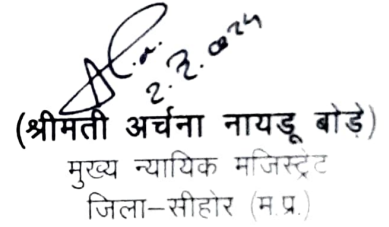 (श्रीमती अर्चना नायडू बोड़े)
मुख्य न्यायिक मजिस्ट्रेट
जिला-सीहोर (म.प्र.)